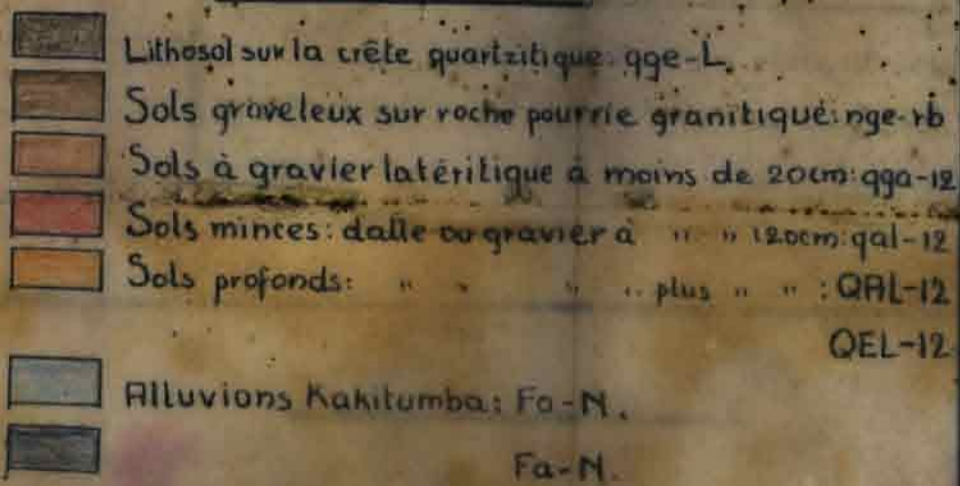 Lithosol sur la crête quartzitique: qge-L.
Sols graveleux sur roche pourrie granitique: nge-rb
Sols à gravier latéritique à moins de 20cm: qga-12
Sols minces: dalle ou gravier à " " 120cm: qal-12
Sols profonds: " " " " plus " " : QAL-12
QEL-12
Alluvions Kakitumba: Fo-N.
Fa-N.